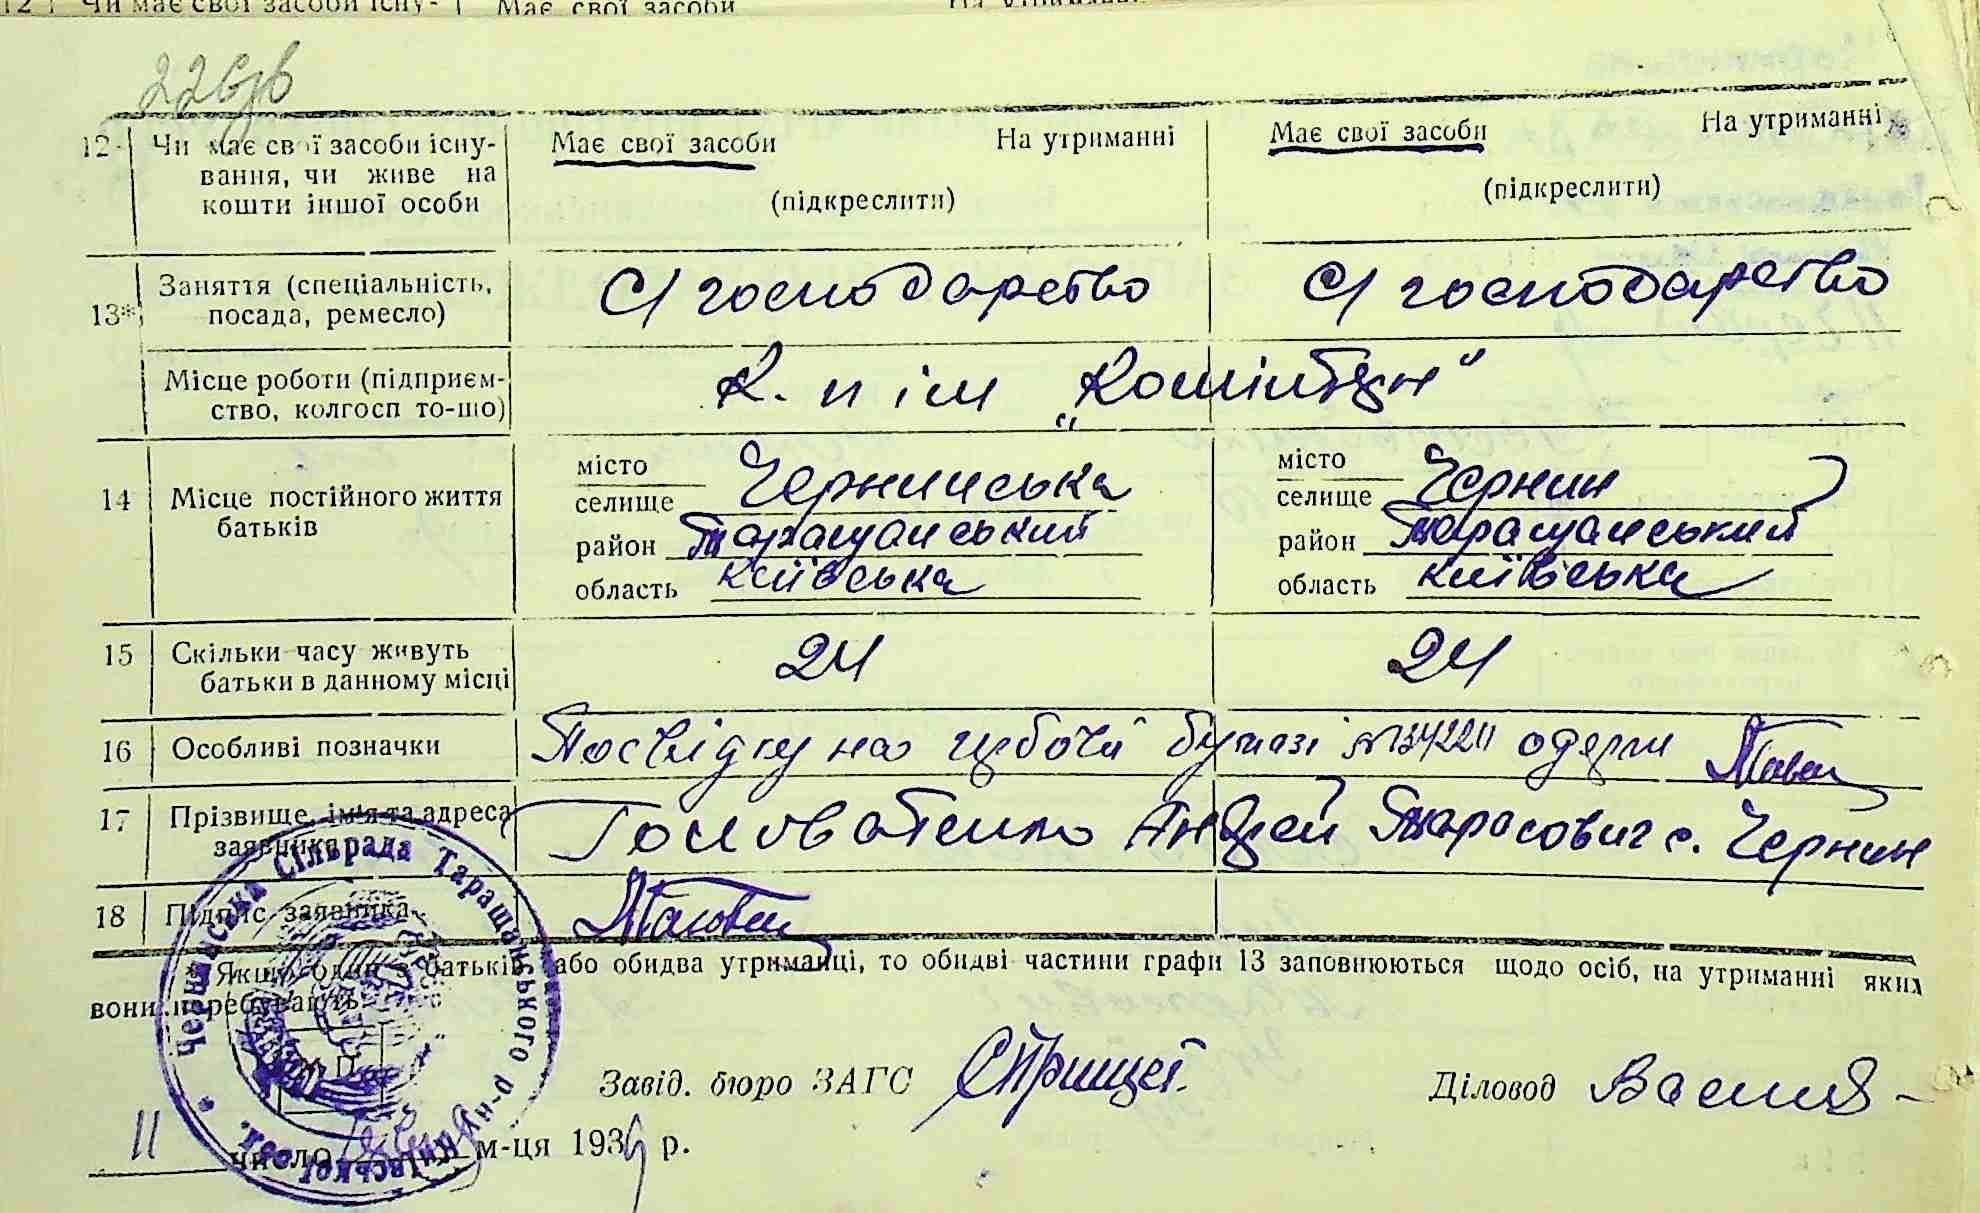 12 Чи має свої засоби існу- Має свої засоби На утриман
226зв
12 Чи має свої засоби існу- Має свої засоби На утриманні Має свої засоби На утриманні
вання, чи живе на (підкреслити) (підкреслити)
кошти іншої особи
13* Заняття (спеціальність, С/господарство С/господарство
посада, ремесло)
Місце роботи (підприєм- К. п ім „Комінтерн"
ство, колгосп то-що)
14 Місце постійного життя місто Чернинська місто Чернин
батьків селище селище
район Таращанський район Таращанський
область київська область київська
15 Скільки часу живуть 24 24
батьки в данному місці
16 Особливі позначки Посвідку на бумазі одерж
17 Прізвище, ім'я та адреса Головатенко Андрей Тарасович с. Чернин
заявника
18 Підпис заявника
* Якщо один з батьків або обидва утриманці, то обидві частини графи 13 заповнюються щодо осіб, на утриманні яких
вони перебувають.
М. П.
Завід. бюро ЗАГС Діловод
11 число м-ця 1939 р.
Чернинська Сільрада Таращанського р-ну Київської обл.